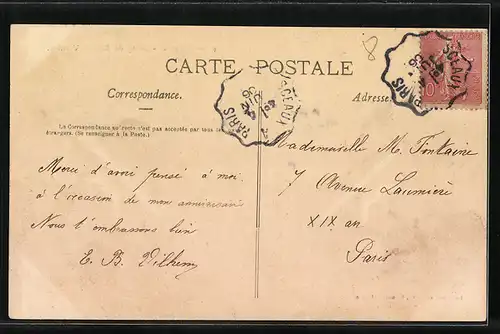 CARTE POSTALE
Correspondance.
Adresse
La Correspondance au recto n'est pas acceptée par tous
étrangers. (Se renseigner à la Poste.)
PARIS
SCEAUX
PARIS
SCEAUX
10
8
Merci d'avoir pensé à moi
à l'occasion de mon anniversaire
Nous t'embrassons bien
E. B. Wilhem
Mademoiselle M. Fontaine
7 Avenue Laumière
XIX ar
Paris